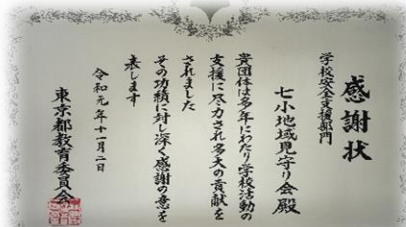 感謝状
学校安全支援部門
七小地域見守り会殿
貴団体は多年にわたり学校活動の
支援に尽力され多大の貢献を
されました
その功績に対し深く感謝の意を
表します
令和元年十一月二日
東京都教育委員会